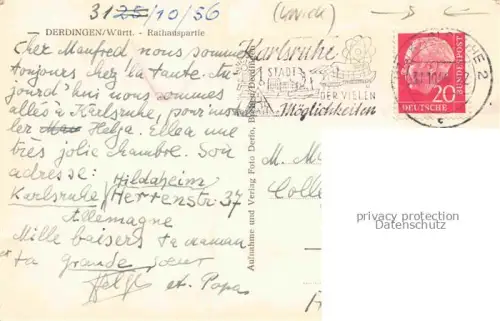 31 25/10/56
DERDINGEN/Württ. - Rathauspartie
Cher Manfred nous sommes
toujours chez la tante. Au-
jourd'hui nous sommes
allés à Karlsruhe, pour
Helga. Elle a une
très jolie chambre. Son
adresse: Hildaheim
Karlsruhe / Herrenstr. 37
Allemagne
Mille baisers ta maman
ta grande sœur
Helga et Papa
Aufnahme und Verlag Foto Derio,
Karlsruhe
STADT
DER VIELEN
Möglichkeiten
KARLSRUHE 2
c
20
DEUTSCHE
BUNDESPOST
M.
privacy protection
Datenschutz